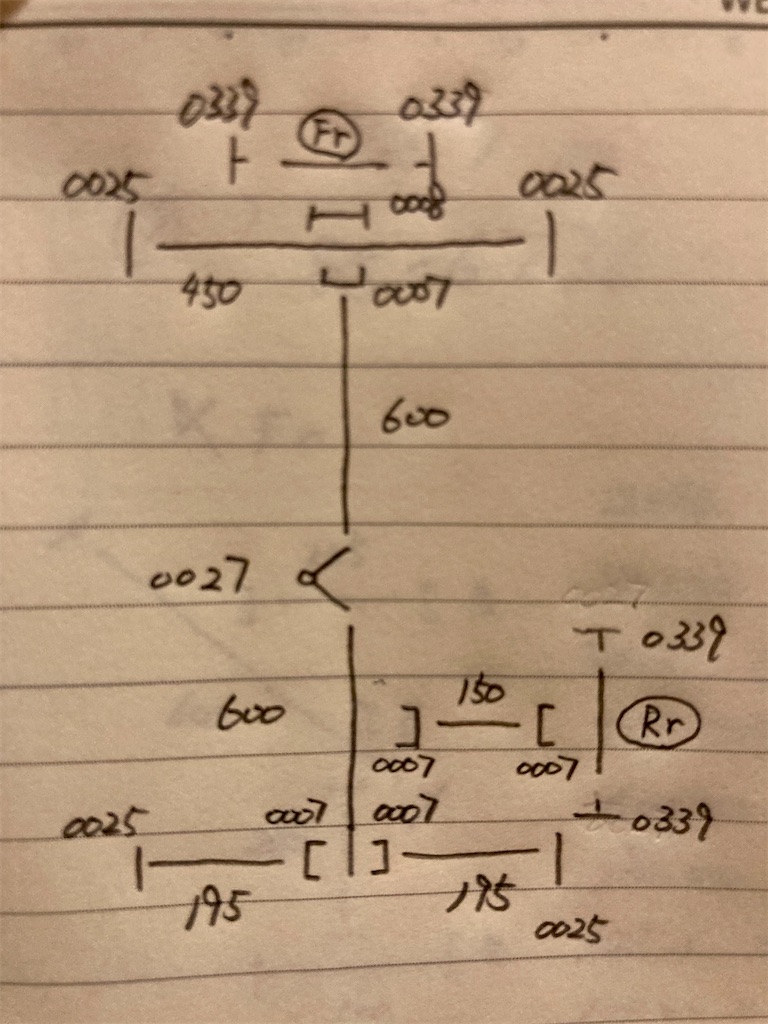 0339 Fr 0339
0025 0025
0008
450 0007
600
0027
0339
150
600 Rr
0007 0007
0025 0007 0007 0339
195 195
0025